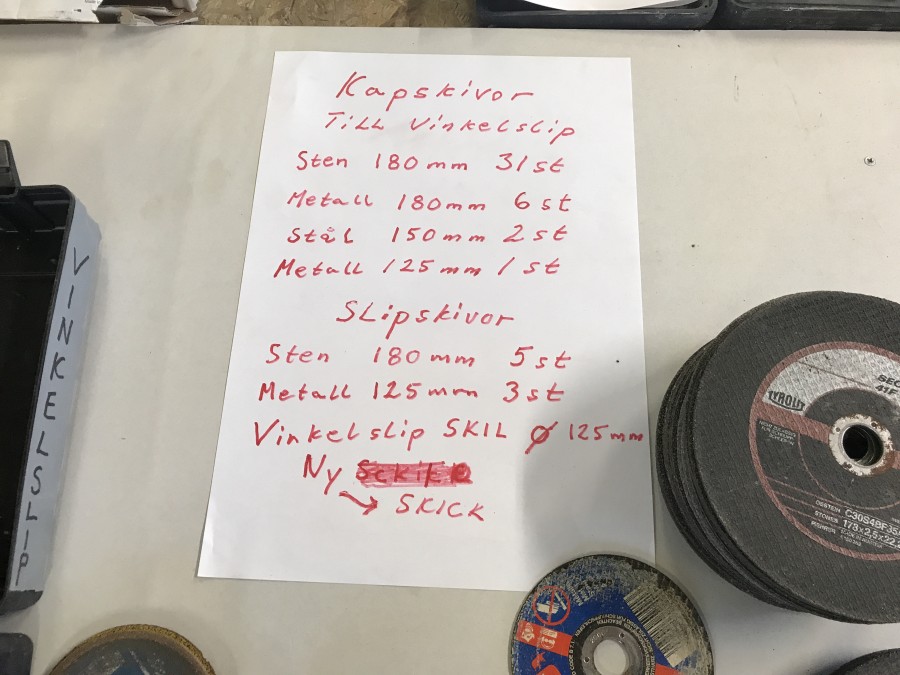 Kapskivor
Till Vinkelslip
Sten 180 mm 31 st
Metall 180 mm 6 st
Stål 150 mm 2 st
Metall 125 mm 1 st
Slipskivor
Sten 180 mm 5 st
Metall 125 mm 3 st
Vinkelslip SKIL Ø 125 mm
Ny
→ SKICK
VINKELSLIP
TYROLIT
SEC
41F
178×2,5×22,2